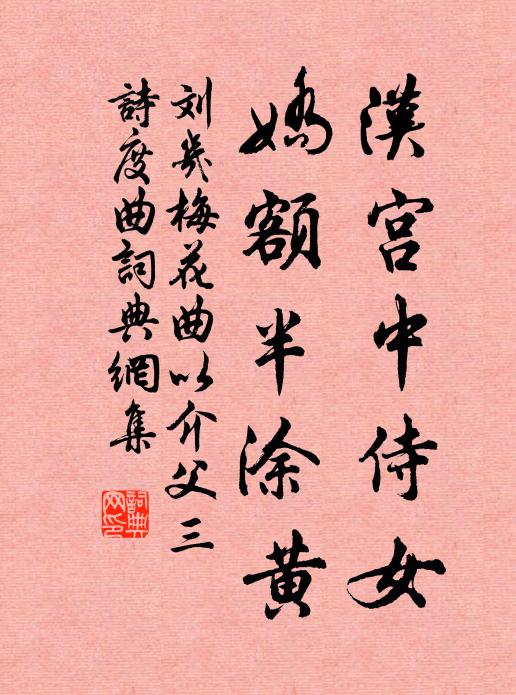 漢宮中侍女
嬌額半涂黃
刘幾梅花曲以介父三
詩度曲詞典網集
詞典
网印